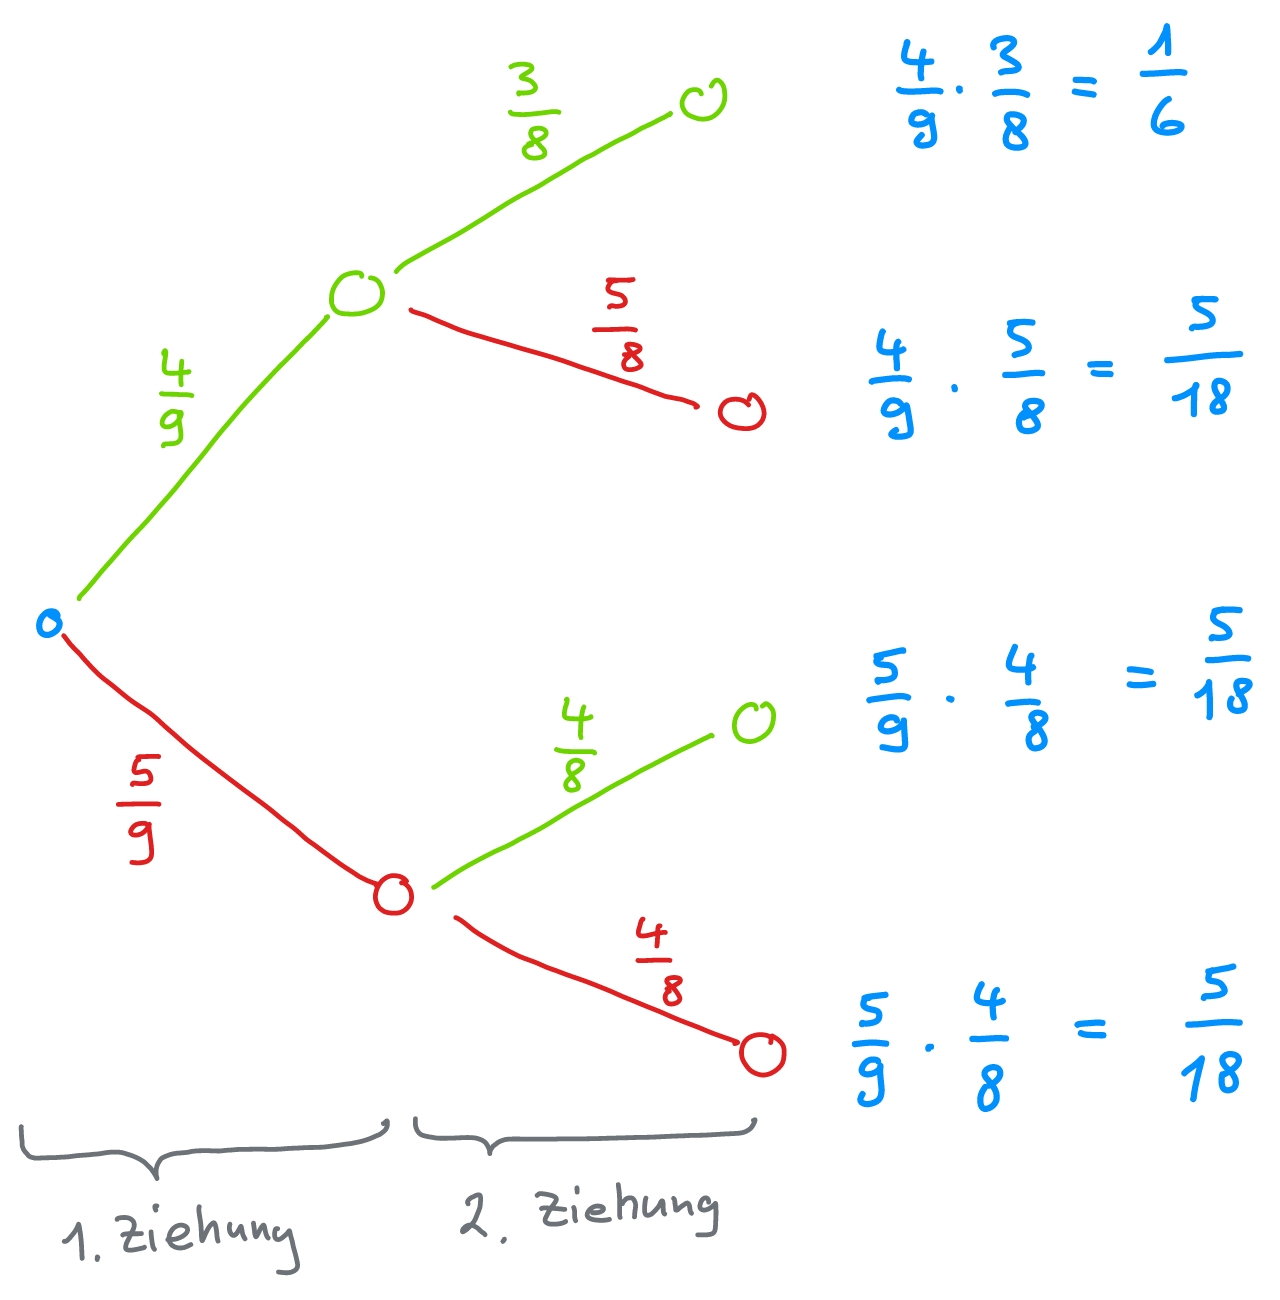 3/8
4/9 · 3/8 = 1/6
5/8
4/9 · 5/8 = 5/18
4/9
5/9 · 4/8 = 5/18
4/8
5/9
4/8
5/9 · 4/8 = 5/18
1. Ziehung
2. Ziehung